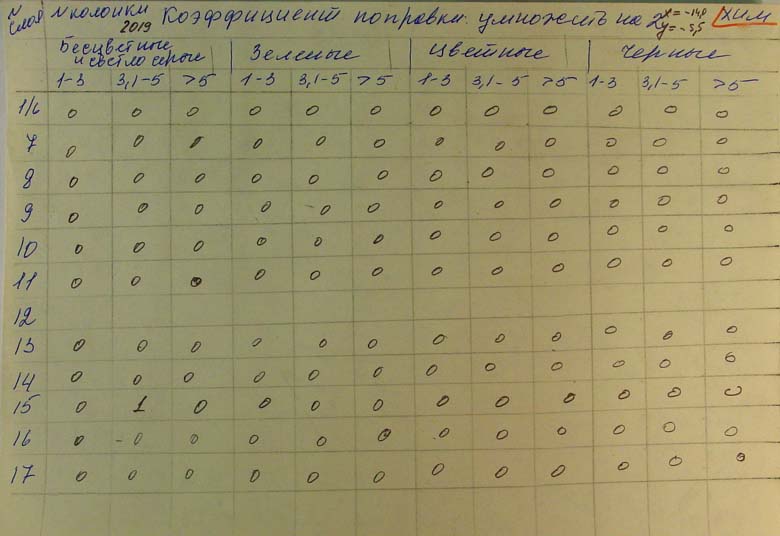 N слоя N колонки 2019 Коэффициент поправки: умножить на 2 x = -14,8 y = -5,5 ХИМ
Бесцветные и светло серые Зеленые Цветные Черные
1-3 3,1-5 >5 1-3 3,1-5 >5 1-3 3,1-5 >5 1-3 3,1-5 >5
1/6 0 0 0 0 0 0 0 0 0 0 0 0
7 0 0 0 0 0 0 0 0 0 0 0 0
8 0 0 0 0 0 0 0 0 0 0 0 0
9 0 0 0 0 0 0 0 0 0 0 0 0
10 0 0 0 0 0 0 0 0 0 0 0 0
11 0 0 0 0 0 0 0 0 0 0 0 0
12
13 0 0 0 0 0 0 0 0 0 0 0 0
14 0 0 0 0 0 0 0 0 0 0 0 0
15 0 1 0 0 0 0 0 0 0 0 0 0
16 0 0 0 0 0 0 0 0 0 0 0 0
17 0 0 0 0 0 0 0 0 0 0 0 0